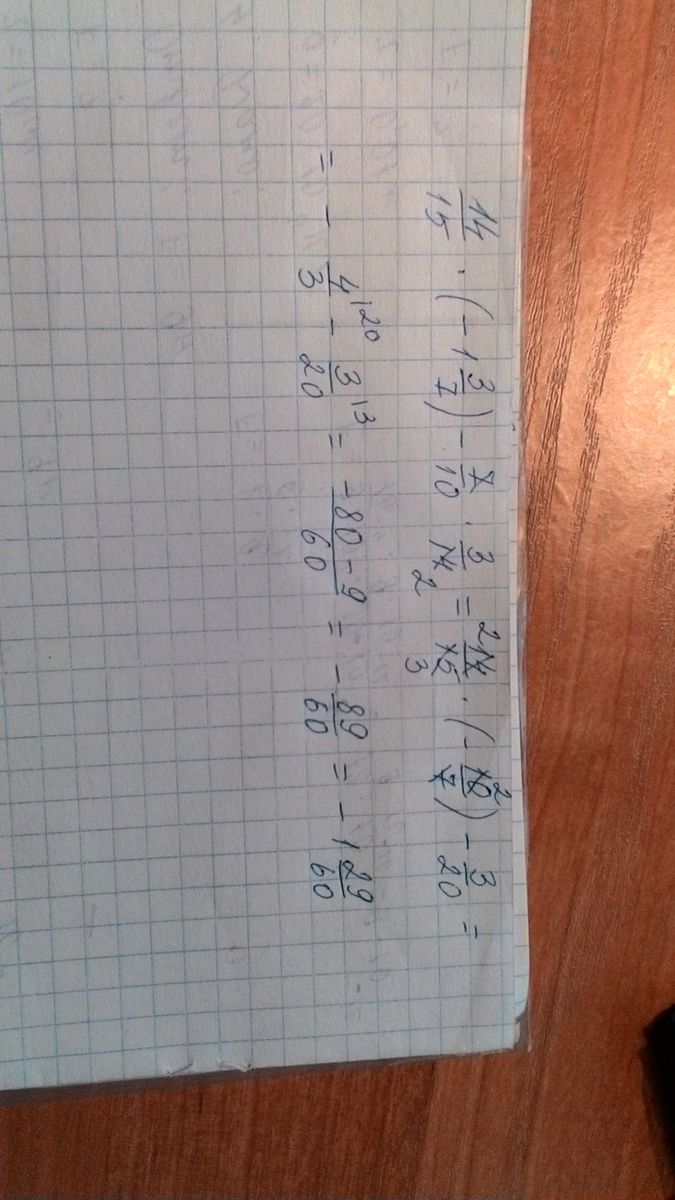 14/15 · (-1 3/7) - 7/10 · 3/14 2 = 2 14/15 3 · (-10 2/7) - 3/20 =
= - 4\20/3 - 3\3/20 = -80-9/60 = - 89/60 = -1 29/60